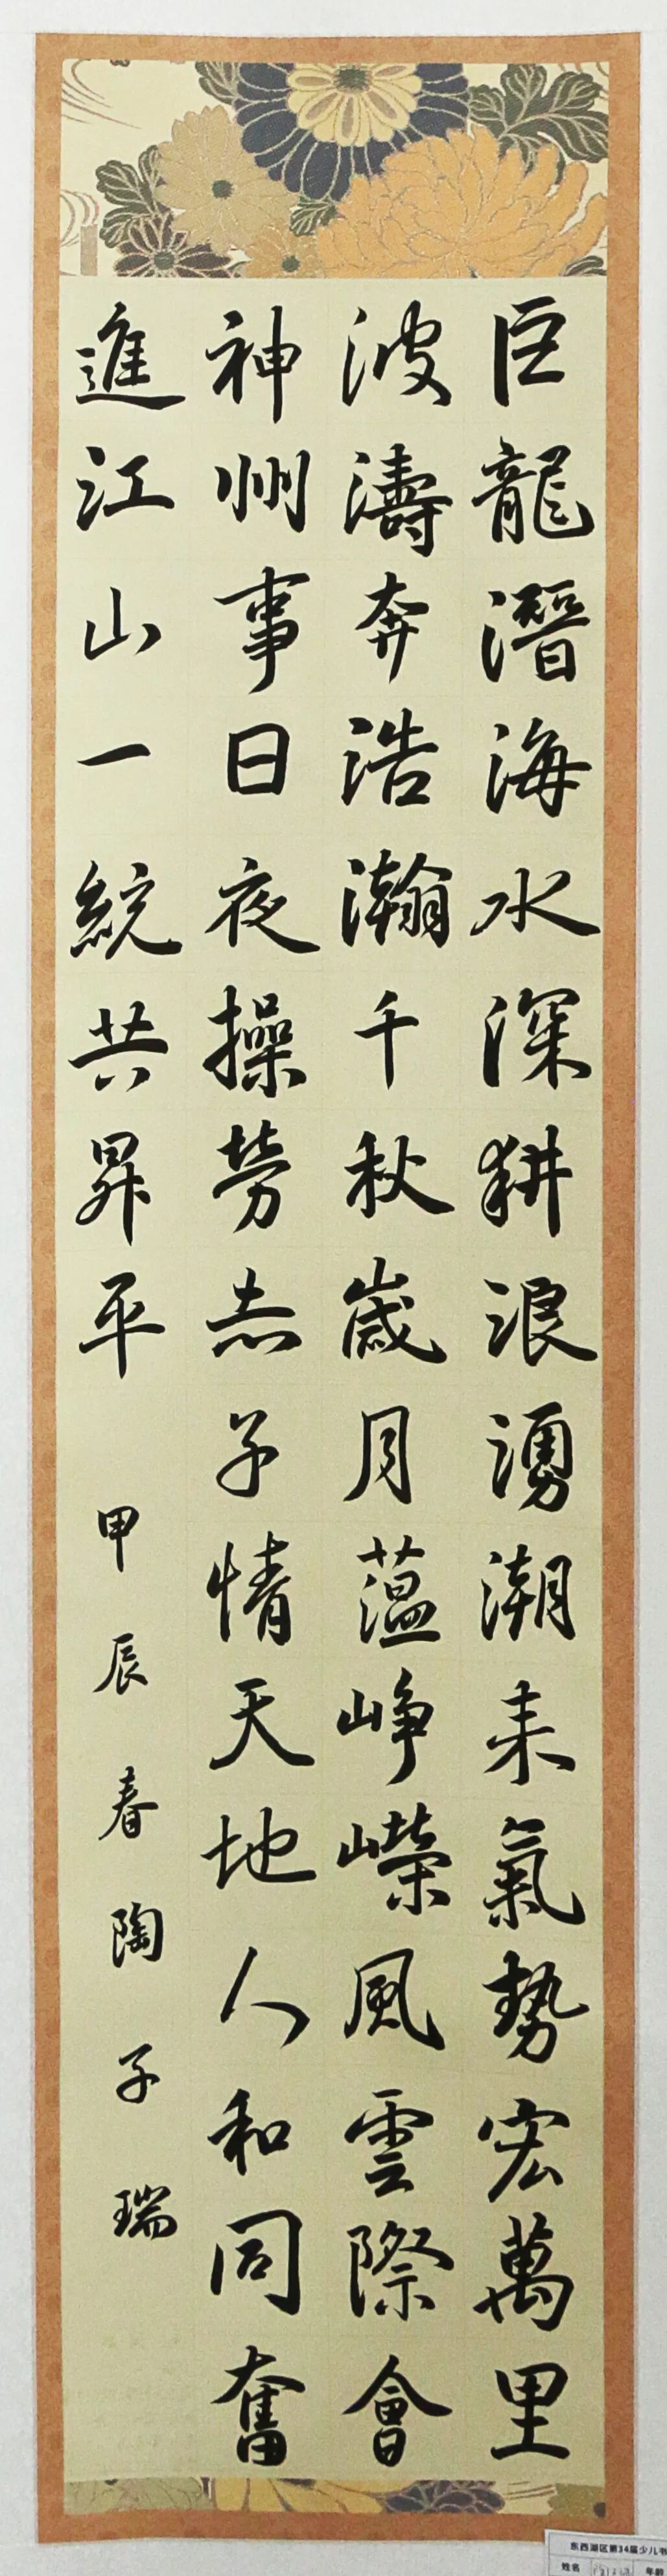 巨龍潛海水深耕浪湧潮來氣勢宏萬里
波濤奔浩瀚千秋歲月蘊崢嶸風雲際會
神州事日夜操勞赤子情天地人和同奮
進江山一統共昇平
甲辰春陶子瑞
东西湖区第34届少儿书
姓名
年龄